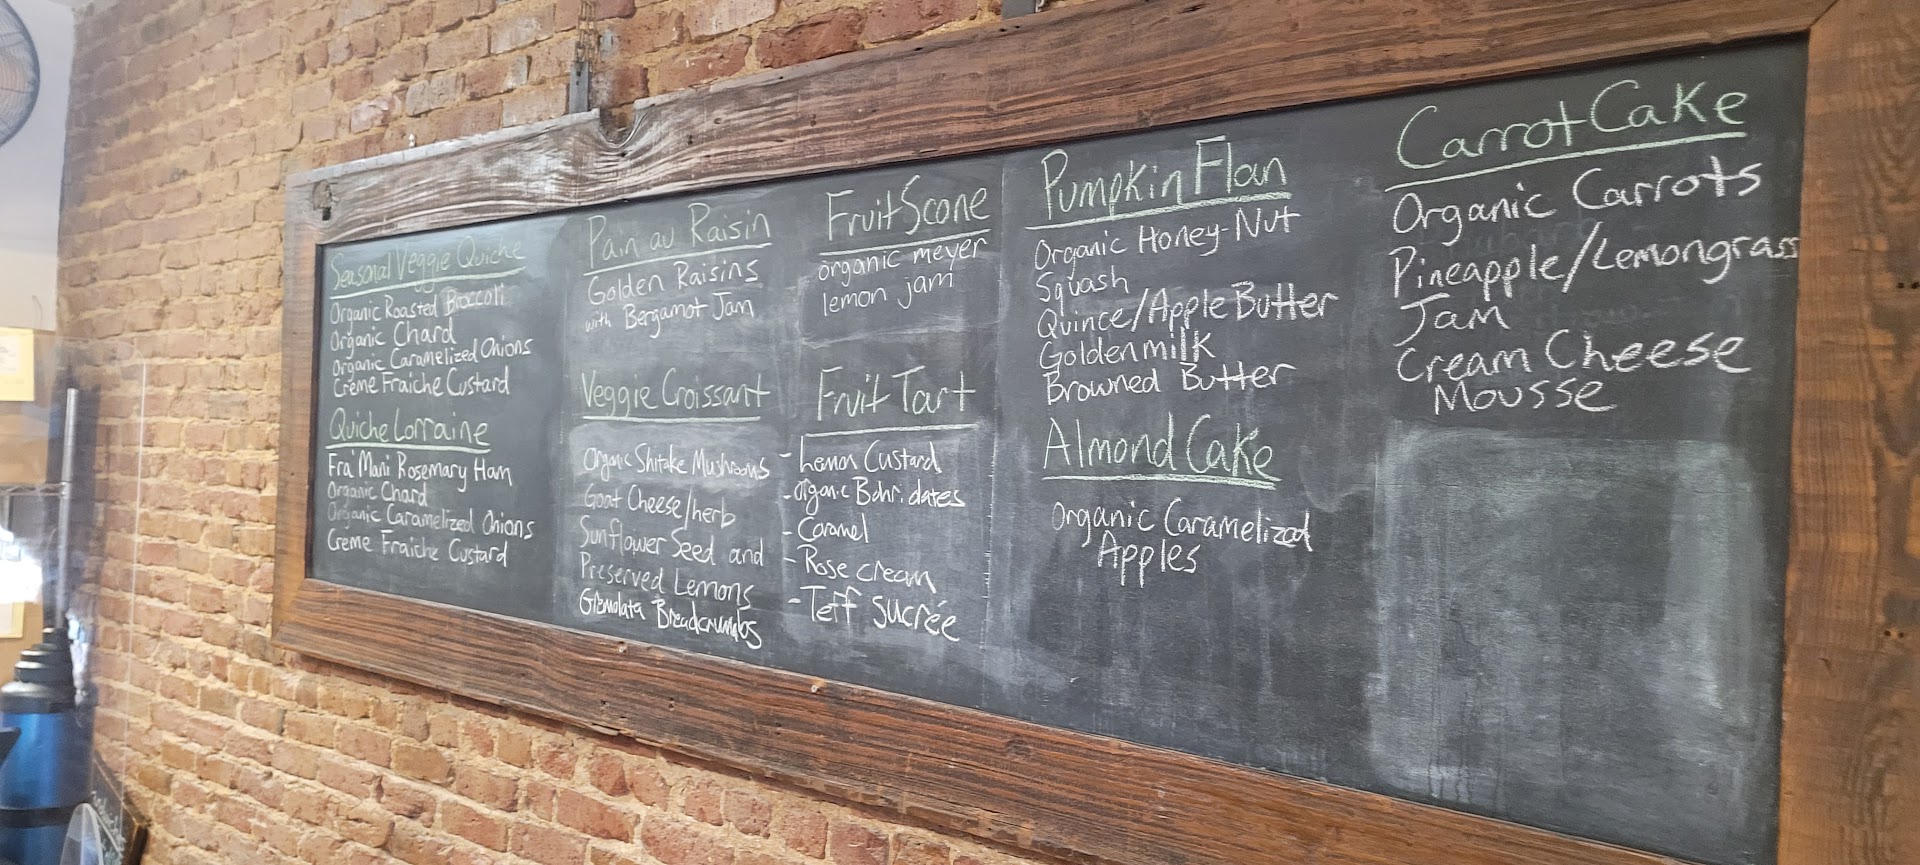 Seasonal Veggie Quiche
Organic Roasted Broccoli
Organic Chard
Organic Caramelized Onions
Créme Fraiche Custard
Quiche Lorraine
Fra' Mani Rosemary Ham
Organic Chard
Organic Caramelized Onions
Creme Fraiche Custard
Pain au Raisin
Golden Raisins
with Bergamot Jam
Veggie Croissant
Organic Shitake Mushrooms
Goat Cheese/herb
Sunflower Seed and
Preserved Lemons
Gremolata Breadcrumbs
Fruit Scone
organic meyer
lemon jam
Fruit Tart
- Lemon Custard
- Organic Bahri dates
- Caramel
- Rose cream
- Teff sucrée
Pumpkin Flan
Organic Honey-Nut
Squash
Quince/Apple Butter
Goldenmilk
Browned Butter
Almond Cake
Organic Caramelized
Apples
Carrot Cake
Organic Carrots
Pineapple/Lemongrass
Jam
Cream Cheese
Mousse